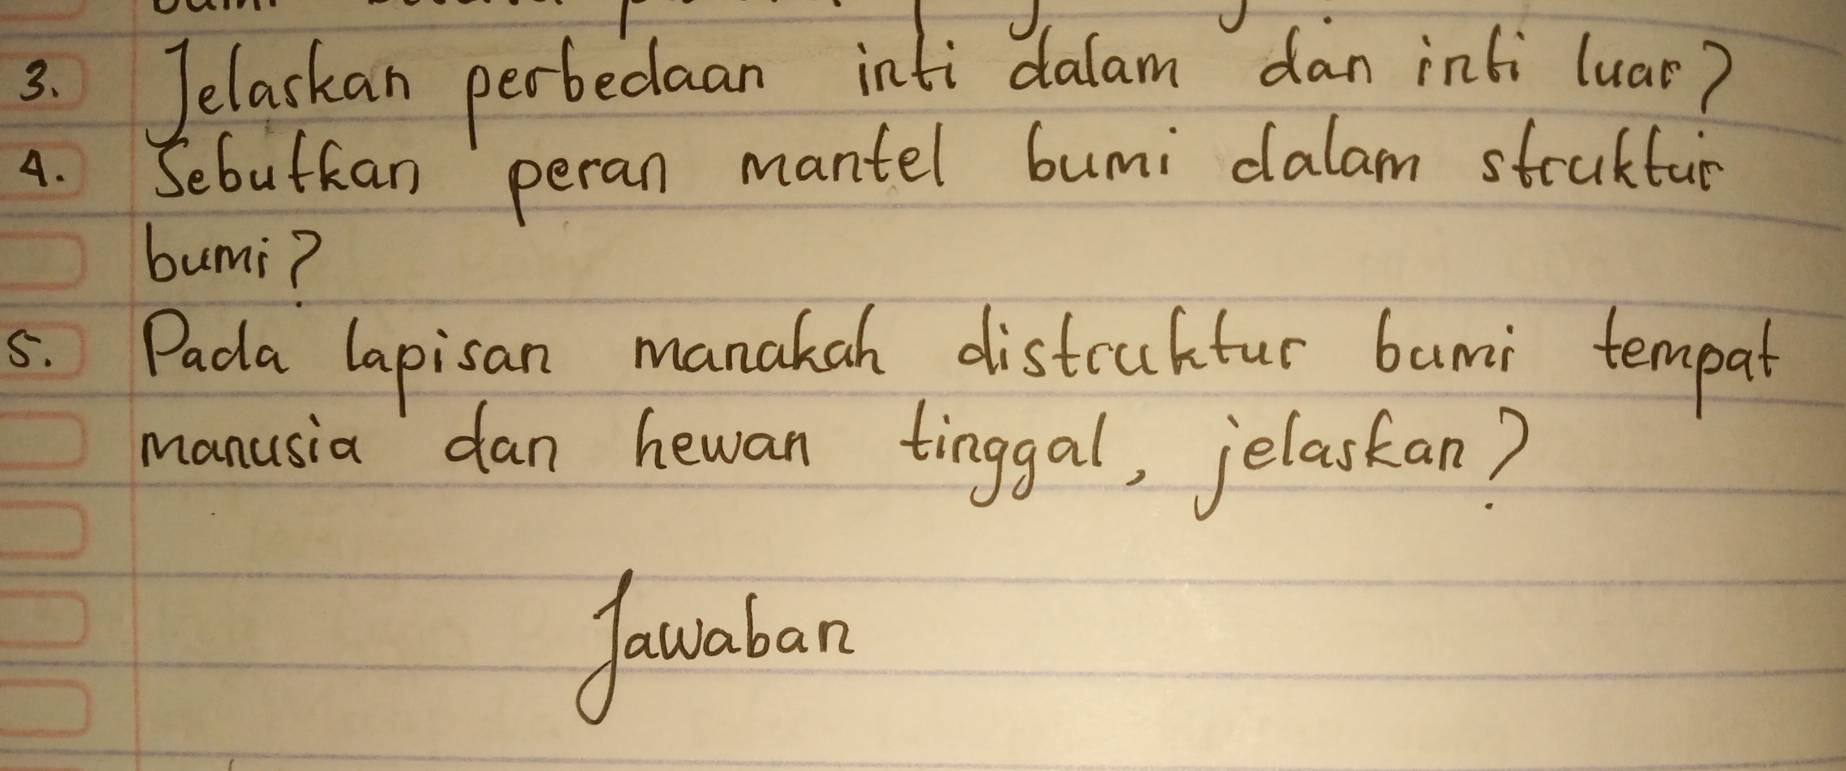 3. Jelaskan perbedaan inti dalam dan inti luar?
4. Sebutkan peran mantel bumi dalam struktur
bumi?
5. Pada lapisan manakah distruktur bumi tempat
manusia dan hewan tinggal, jelaskan?
Jawaban